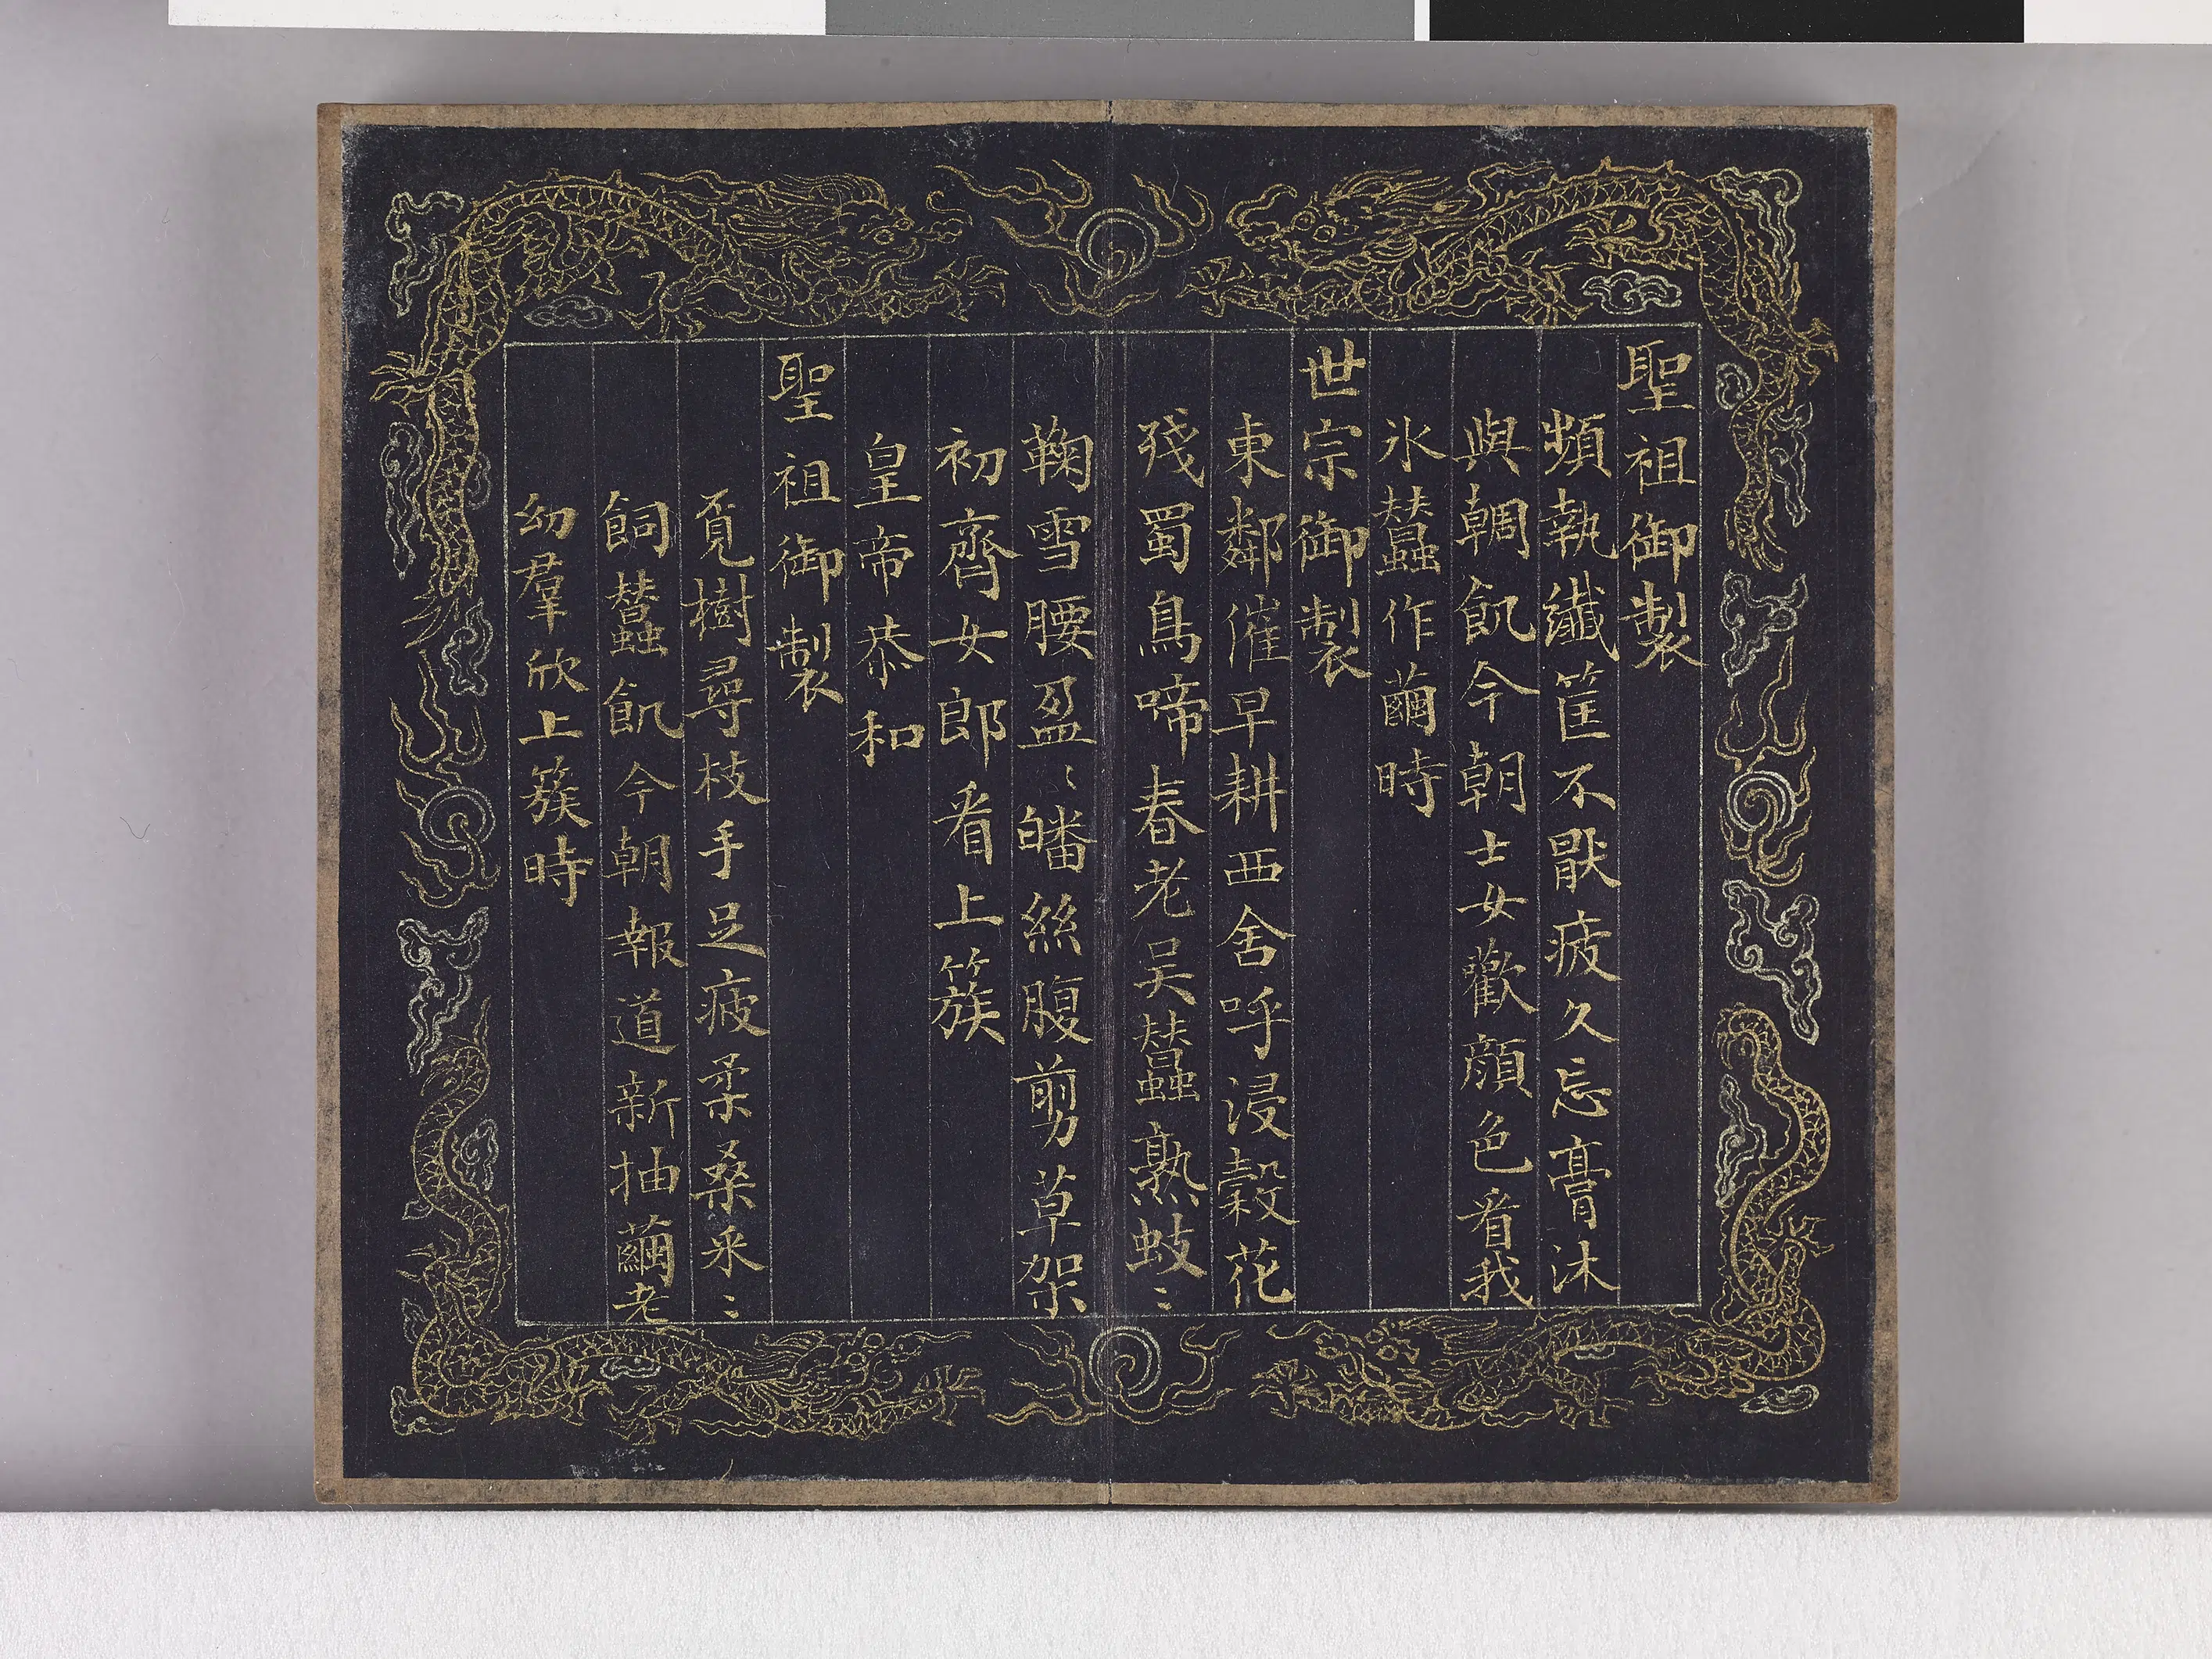 聖祖御製
頻執纖筐不厭疲久忘膏沐
與朝飢今朝士女歡顏色看我
氷蠶作繭時
世宗御製
東鄰催早耕西舍呼浸穀花
殘蜀鳥啼春老吳蠶熟蚑〻
鞠雪腰盈〻皤絲腹剪草架
初齊女郎看上簇
皇帝恭和
聖祖御製
覓樹尋枝手足疲柔桑采〻
飼蠶飢今朝報道新抽繭老
幼羣欣上簇時